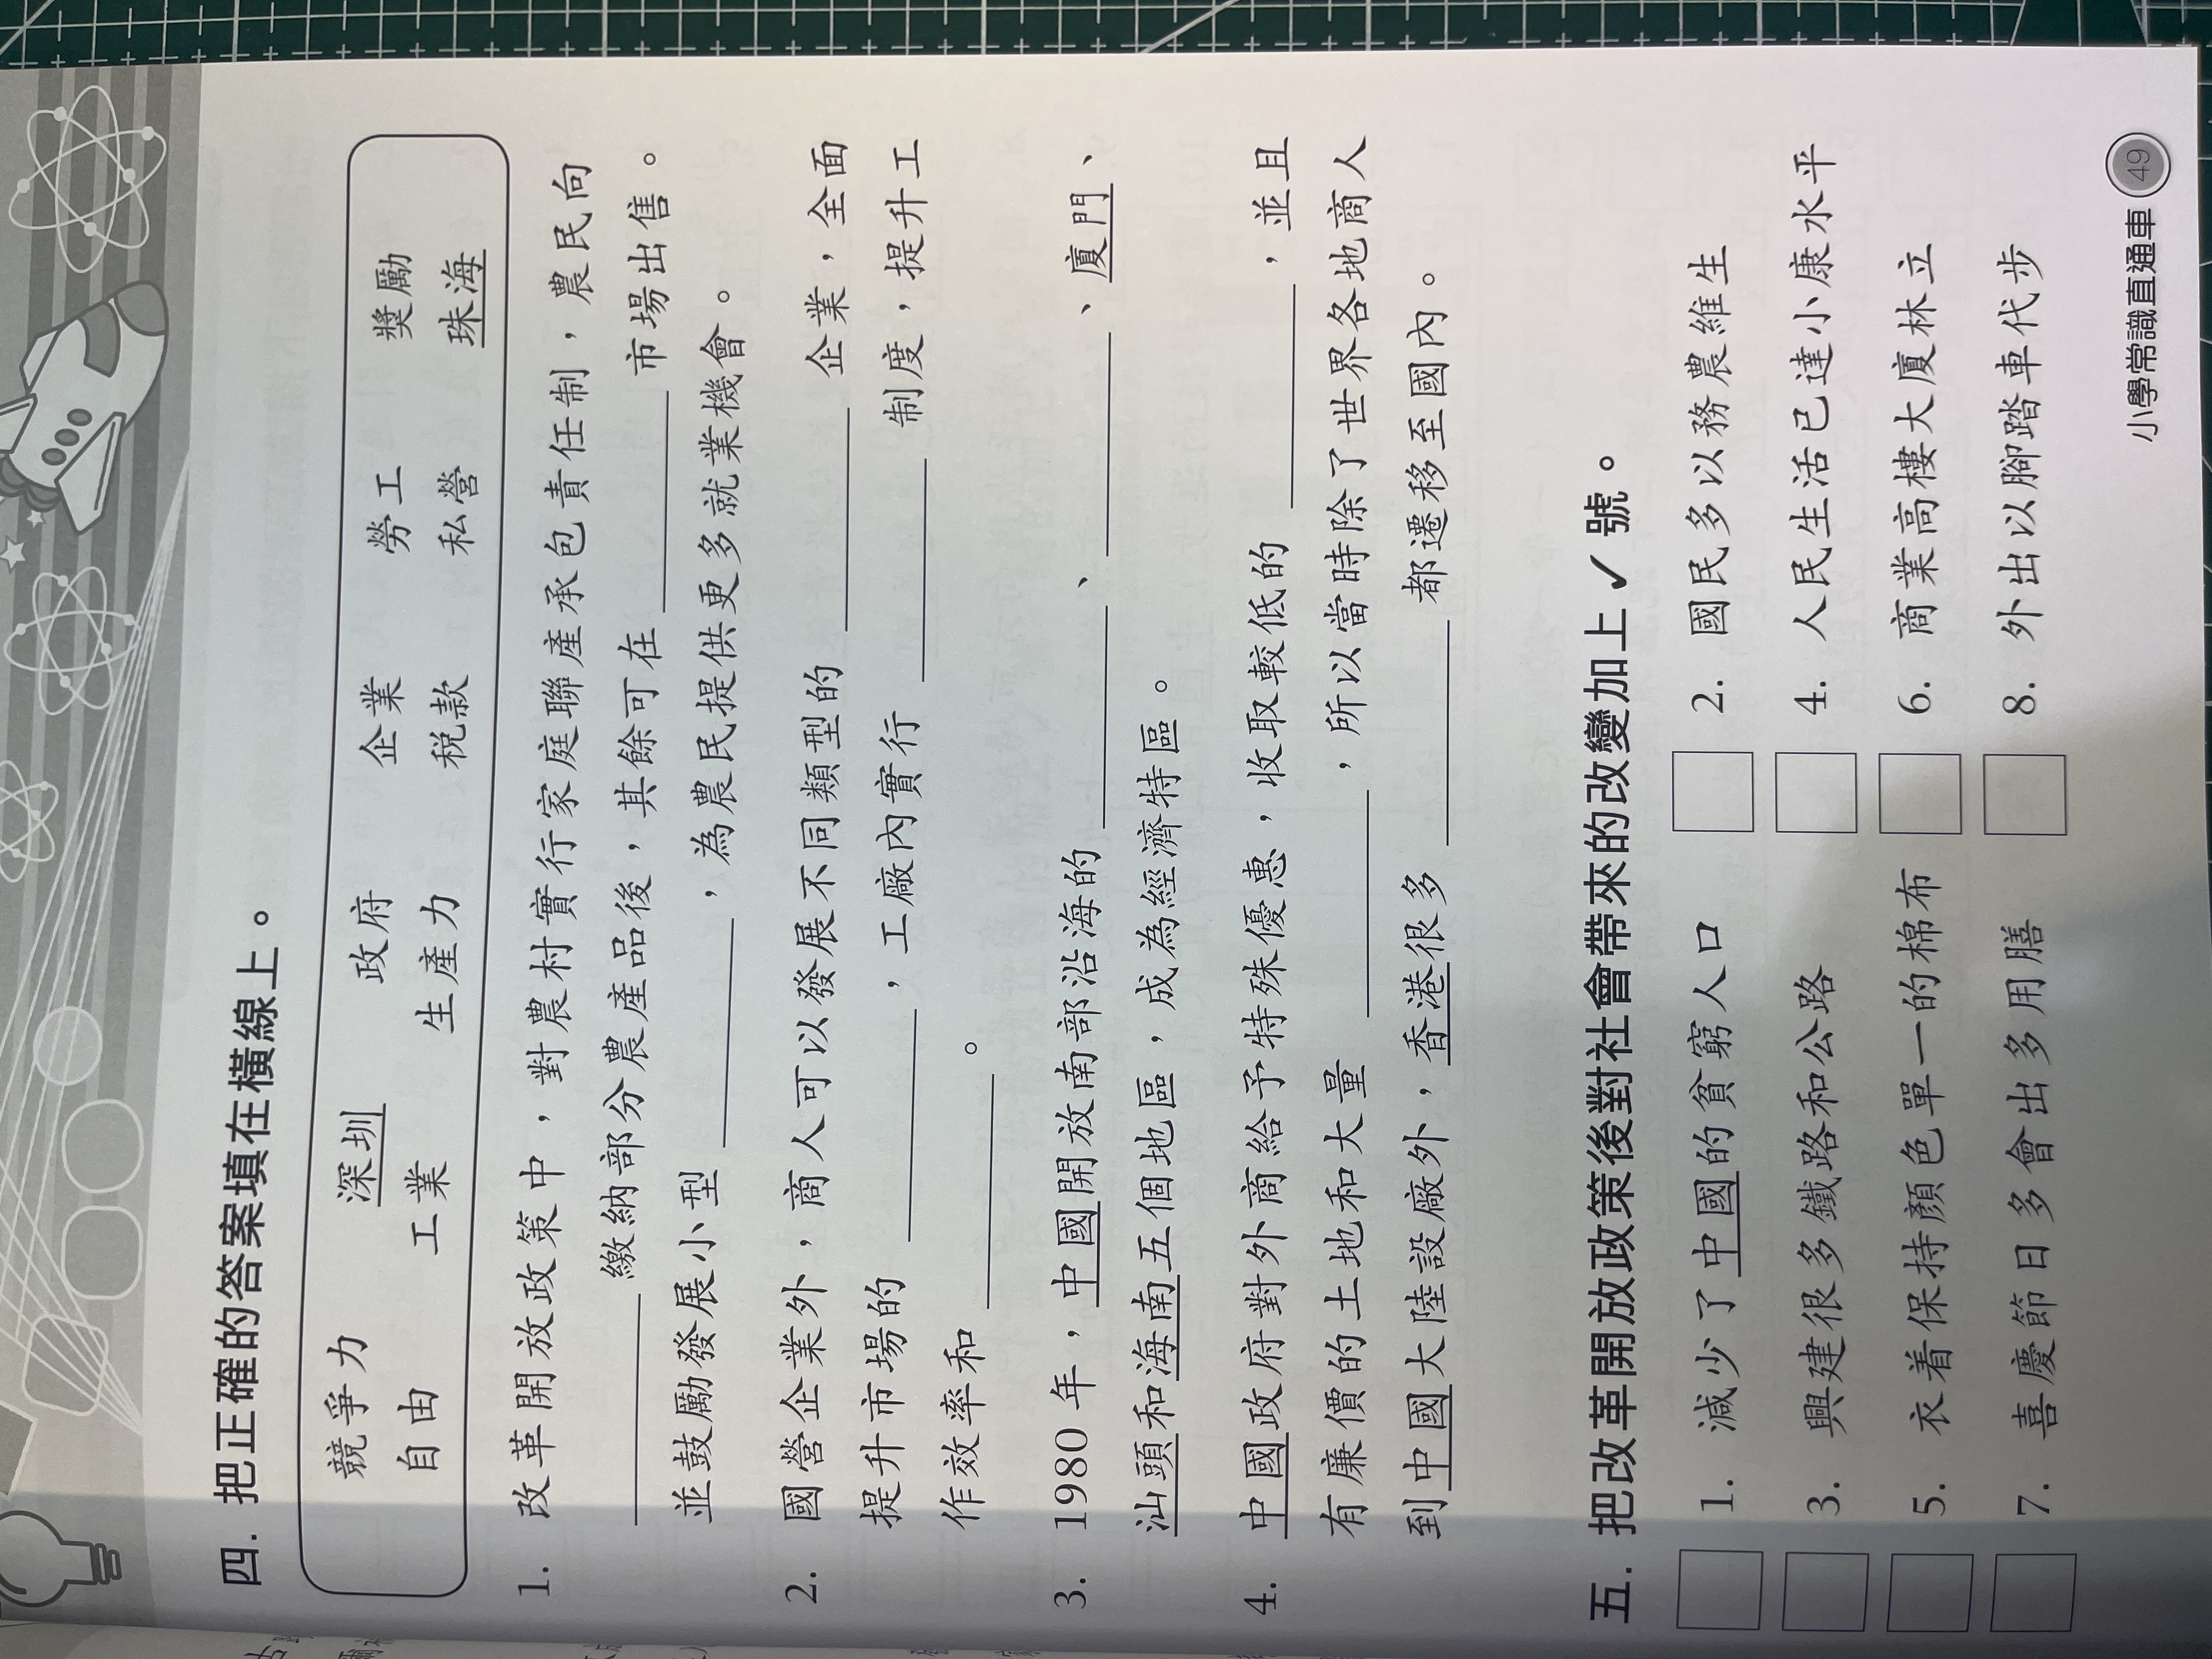 四. 把正確的答案填在橫線上。
競爭力 深圳 政府 企業 勞工 獎勵
自由 工業 生產力 税款 私營 珠海
1. 改革開放政策中，對農村實行家庭聯產承包責任制，農民向
繳納部分農產品後，其餘可在 市場出售。
並鼓勵發展小型 ，為農民提供更多就業機會。
2. 國營企業外，商人可以發展不同類型的 企業，全面
提升市場的 ，工廠內實行 制度，提升工
作效率和 。
3. 1980 年，中國開放南部沿海的 、 、廈門、
汕頭和海南五個地區，成為經濟特區。
4. 中國政府對外商給予特殊優惠，收取較低的 ，並且
有廉價的土地和大量 ，所以當時除了世界各地商人
到中國大陸設廠外，香港很多 都遷移至國內。
五. 把改革開放政策後對社會帶來的改變加上 ✓ 號。
1. 減少了中國的貧窮人口 2. 國民多以務農維生
3. 興建很多鐵路和公路 4. 人民生活已達小康水平
5. 衣着保持顏色單一的棉布 6. 商業高樓大廈林立
7. 喜慶節日多會出多用膳 8. 外出以腳踏車代步
小學常識直通車 49